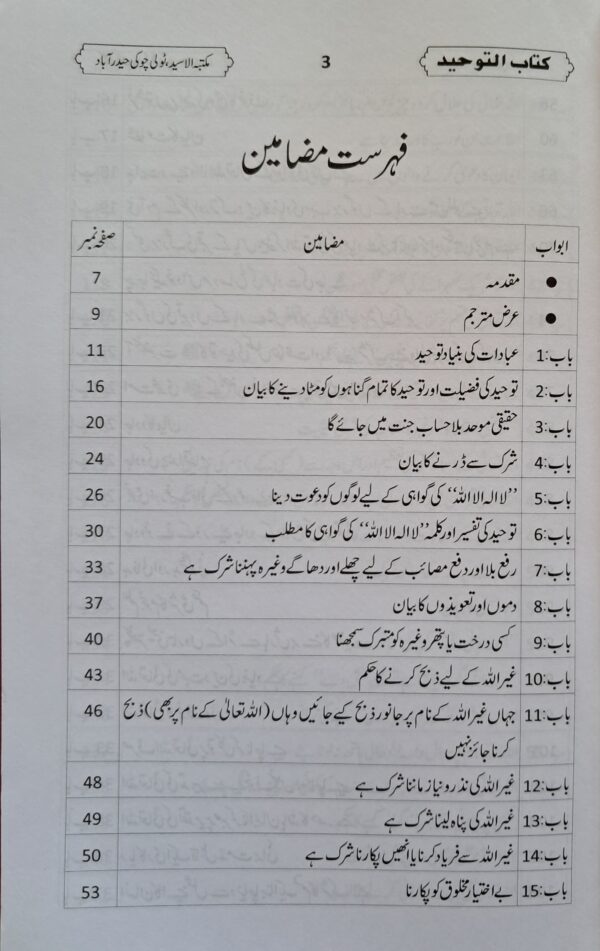 کتاب التوحید 3 مکتبہ الاسید، ٹولی چوکی حیدرآباد
فہرست مضامین
ابواب مضامین صفحہ نمبر
● مقدمہ 7
● عرض مترجم 9
باب:1 عبادات کی بنیاد توحید 11
باب:2 توحید کی فضیلت اور توحید کا تمام گناہوں کو مٹا دینے کا بیان 16
باب:3 حقیقی موحد بلا حساب جنت میں جائے گا 20
باب:4 شرک سے ڈرنے کا بیان 24
باب:5 ’’لا الہ الا اللہ‘‘ کی گواہی کے لیے لوگوں کو دعوت دینا 26
باب:6 توحید کی تفسیر اور کلمہ ’’لا الہ الا اللہ‘‘ کی گواہی کا مطلب 30
باب:7 رفع بلا اور دفع مصائب کے لیے چھلے اور دھاگے وغیرہ پہننا شرک ہے 33
باب:8 دموں اور تعویذوں کا بیان 37
باب:9 کسی درخت یا پتھر وغیرہ کو متبرک سمجھنا 40
باب:10 غیر اللہ کے لیے ذبح کرنے کا حکم 43
باب:11 جہاں غیر اللہ کے نام پر جانور ذبح کیے جائیں وہاں (اللہ تعالیٰ کے نام پر بھی) ذبح 46
کرنا جائز نہیں
باب:12 غیر اللہ کی نذر و نیاز ماننا شرک ہے 48
باب:13 غیر اللہ کی پناہ لینا شرک ہے 49
باب:14 غیر اللہ سے فریاد کرنا یا انھیں پکارنا شرک ہے 50
باب:15 بے اختیار مخلوق کو پکارنا 53